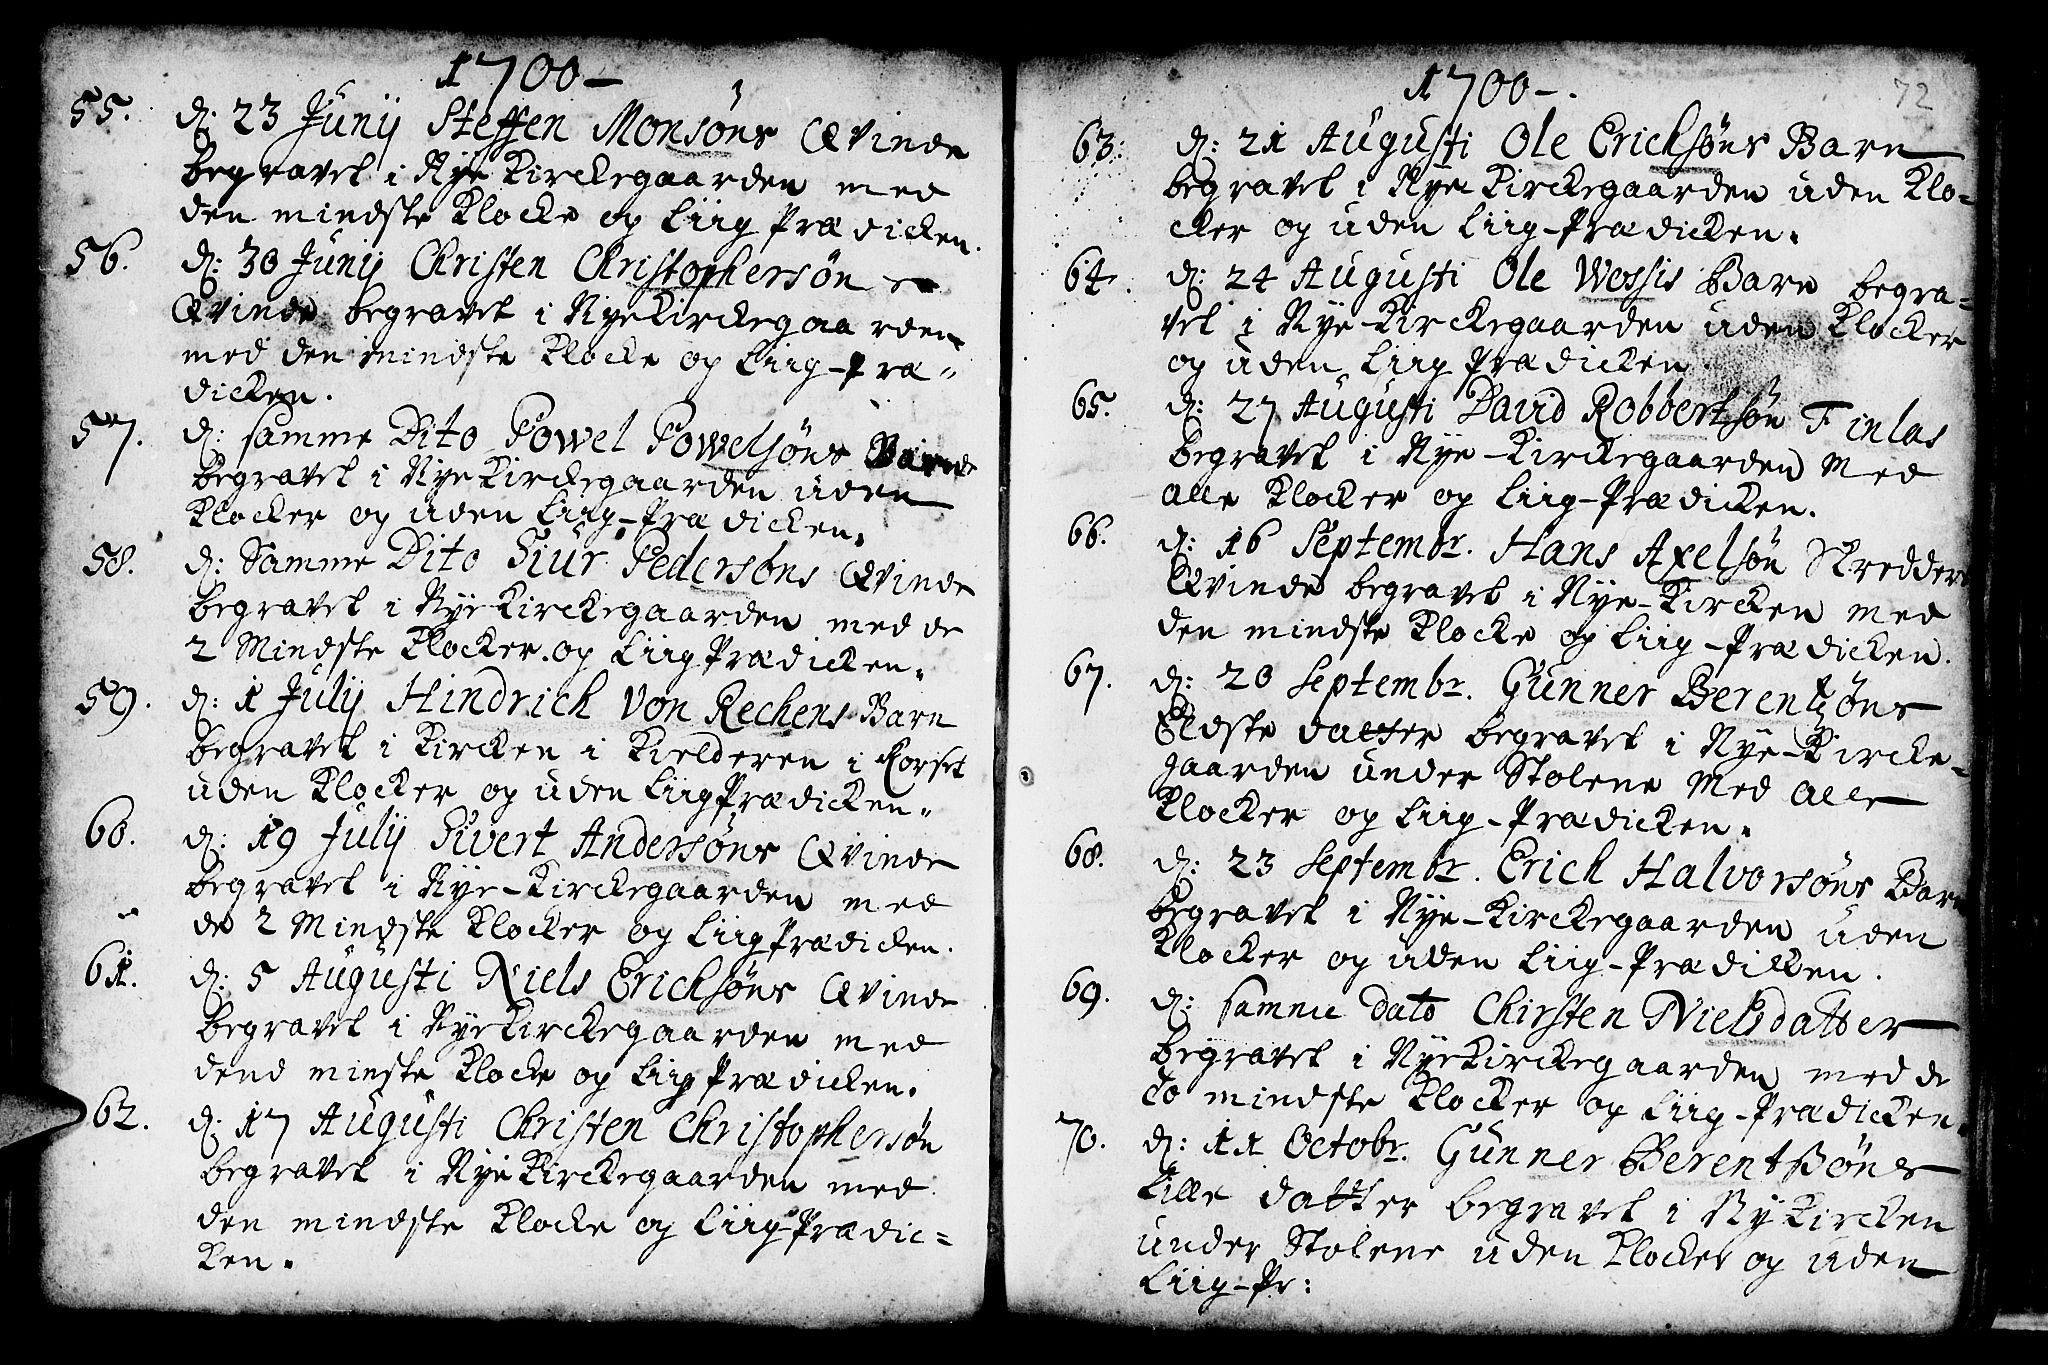 1700 –
55. d: 23 Junij Steffen Monsöns Qvinde
begravet i Nye Kirckegaarden med
den mindste Klocke og Liig Prædicken.
56. d: 30 Junij Christen Christophersön s
Qvinde begravet i Nye Kirckegaarden
med den mindste Klocke og Liig-Præ=
dicken.
57. d: samme Dito Powel Powelsöns
begravet i Nye Kirckegaarden uden
Klocker og uden Liig-Prædicken.
58. d: Samme Dito Siur Pedersöns Qvinde
begravet i Nye Kirckegaarden med de
2 Mindste Klocker og Liig Prædicken.
59. d: 1 Julij Hindrich von Rechens Barn
begravet i Kircken i Kielderen i Corset
uden Klocker og uden Liig Prædicken.
60. d: 19 Julij Sivert Andersöns Qvinde
begravet i Nye-Kirckegaarden med
de 2 Mindste Klocker og Liig Prædicken.
61. d: 5 Augusti Niels Erichsöns Qvinde
begravet i Nye Kirckegaarden med
dend minste Klocke og Liig Prædicken.
62. d: 17 Augusti Christen Christophersön
begravet i Nye Kirckegaarden med
den mindste Klocke og Liig-Prædic=
ken.
72
1700 –.
63. d: 21 Augusti Ole Erichsöns Barn
begravet i Nye Kirckegaarden uden Klo=
cker og uden Liig-Prædicken.
64. d: 24 Augusti Ole Wossis Barn begra=
vet i Nye-Kirckegaarden uden Klocker
og uden Liig Prædicken
65. d: 27 Augusti David Robbertsön Finlas
begravet i Nye-Kirckegaarden Med
alle Klocker og Liig-Prædicken.
66. d: 16 Septembr. Hans Axelsön Skredders
Qvinde begravet i Nye-Kircken med
den mindste Klocke og Liig-Prædicken.
67. d: 20 Septembr. Gunner Berentzöns
Eldste datter begravet i Nye-Kircke=
gaarden under Stolene Med alle
Klocker og Liig-Prædicken.
68. d: 23 Septembr. Erich Halvorsöns Barn
begravet i Nye-Kirckegaarden uden
Klocker og uden Liig-Prædicken.
69. d: samme dato Chirsten Nielsdatter
begravet i Nye Kirckegaarden med de
to mindste Klocker og Liig-Prædicken.
70. d: 11 Octobr. Gunner Berentßöns
Lille datter begravet i Ny Kircken
under Stolene uden Klocker og uden
Liig-Pr: